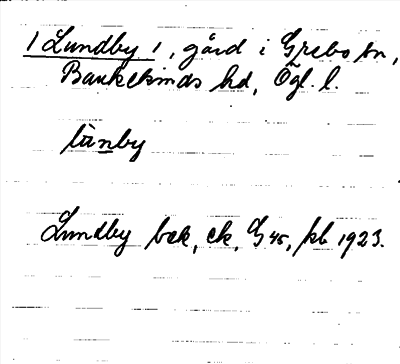 / Lundby /, gård i Grebo sn,
Bankekinds hd, Ögl. l.
lùnby
Lundby bek, ek, G 45, kb 1923.